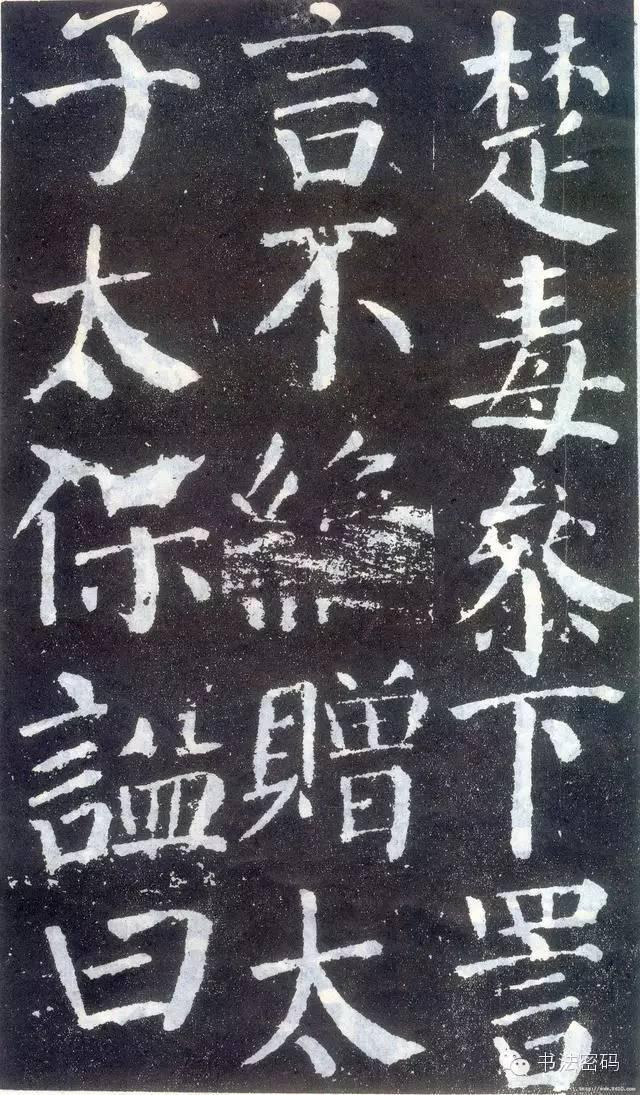 楚毒參下詈
言不絕贈太
子太保謚曰
书法密码